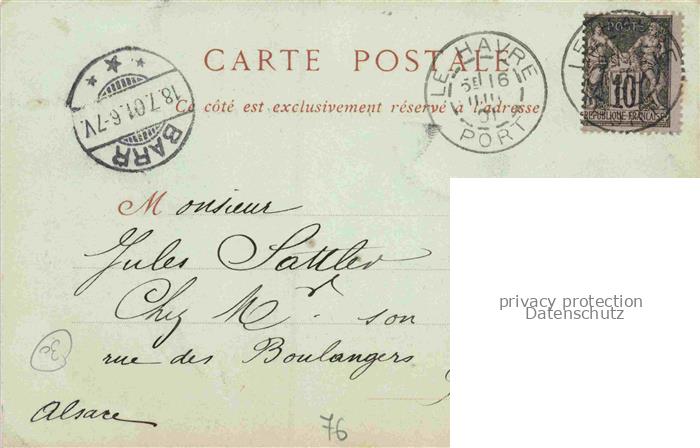 CARTE POSTALE
Ce côté est exclusivement réservé à l'adresse
BARR
18.7.01.6-7V.
LE HAVRE
5E 16
JUIL
01
PORT
POSTES
10
REPUBLIQUE FRANÇAISE
Monsieur
Jules Sattler
Chez Mr. son
rue des Boulangers
Alsace
76
privacy protection
Datenschutz